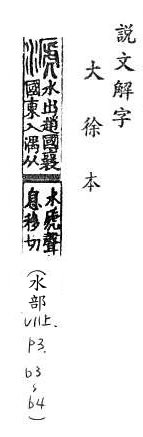 說文解字
大徐本
㴲
水出趙國襄
國東入湡从
水虒聲
息移切
(水部V11上. P3. b3~b4)